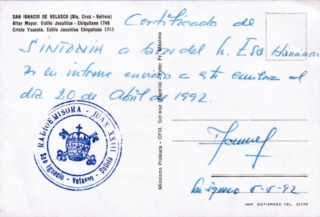 SAN IGNACIO DE VELASCO (Sta. Cruz - Bolivia)
Altar Mayor. Estilo Jesuítico - Chiquitano 1748
Cristo Yacente. Estilo Jesuítico Chiquitano 1748
Certificado de
SINTONIA a favor del h. Esa
su informe enviado a esta emisora el
día 20 de Abril de 1992.
RADIOEMISORA - JUAN XXIII
San Ignacio - Velasco - Bolivia
Missions Prokura - OFM.
San Ignacio 5-5-92
IMP. GUTIERREZ TEL.